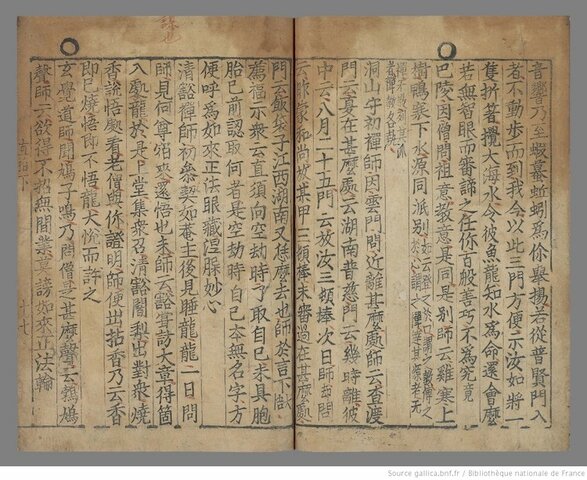 音響乃至蝦蟇蚯蚓爲你舉揚若從普賢門入
者不動步而到我今以此三門方便示汝如將一
隻折著攪大海水令彼魚龍知水爲命還會麽
若無智眼而審諦之任你百般善巧不爲究竟
巴陵因僧問祖意敎意是同是別師云雞寒上
樹鴨寒下水源同派別
洞山守初禪師因雲門問近離甚麽處師云查渡
門云夏在甚麽處云湖南普慈門云幾時離彼
中云八月二十五門云放汝三頓捧次日師却問
云昨蒙和尚放某甲三頓棒未審過在甚麽處
門云飯袋子江西湖南又恁麽去也師於言下
薦福示衆云直須向空劫時承取自己未具胞
胎已前認取何者是空劫時自己本無名字方
便呼爲如來正法眼藏涅槃妙心
清谿禪師初叅契如菴主後見睡龍龍一日問
師見何尊宿來還悟也未師云谿甞訪大章得箇
入處龍於是上堂集衆召清谿闍梨出對衆燒
香說悟處看老僧與你證明師便出拈香乃云香
即已燒悟即不悟龍大悅而許之
玄覺導師聞鳩子鳴乃問僧是甚麽聲云鵓鳩
聲師云欲得不招無間業莫謗如來正法輪
直指下
十七
Source gallica.bnf.fr / Bibliothèque nationale de France